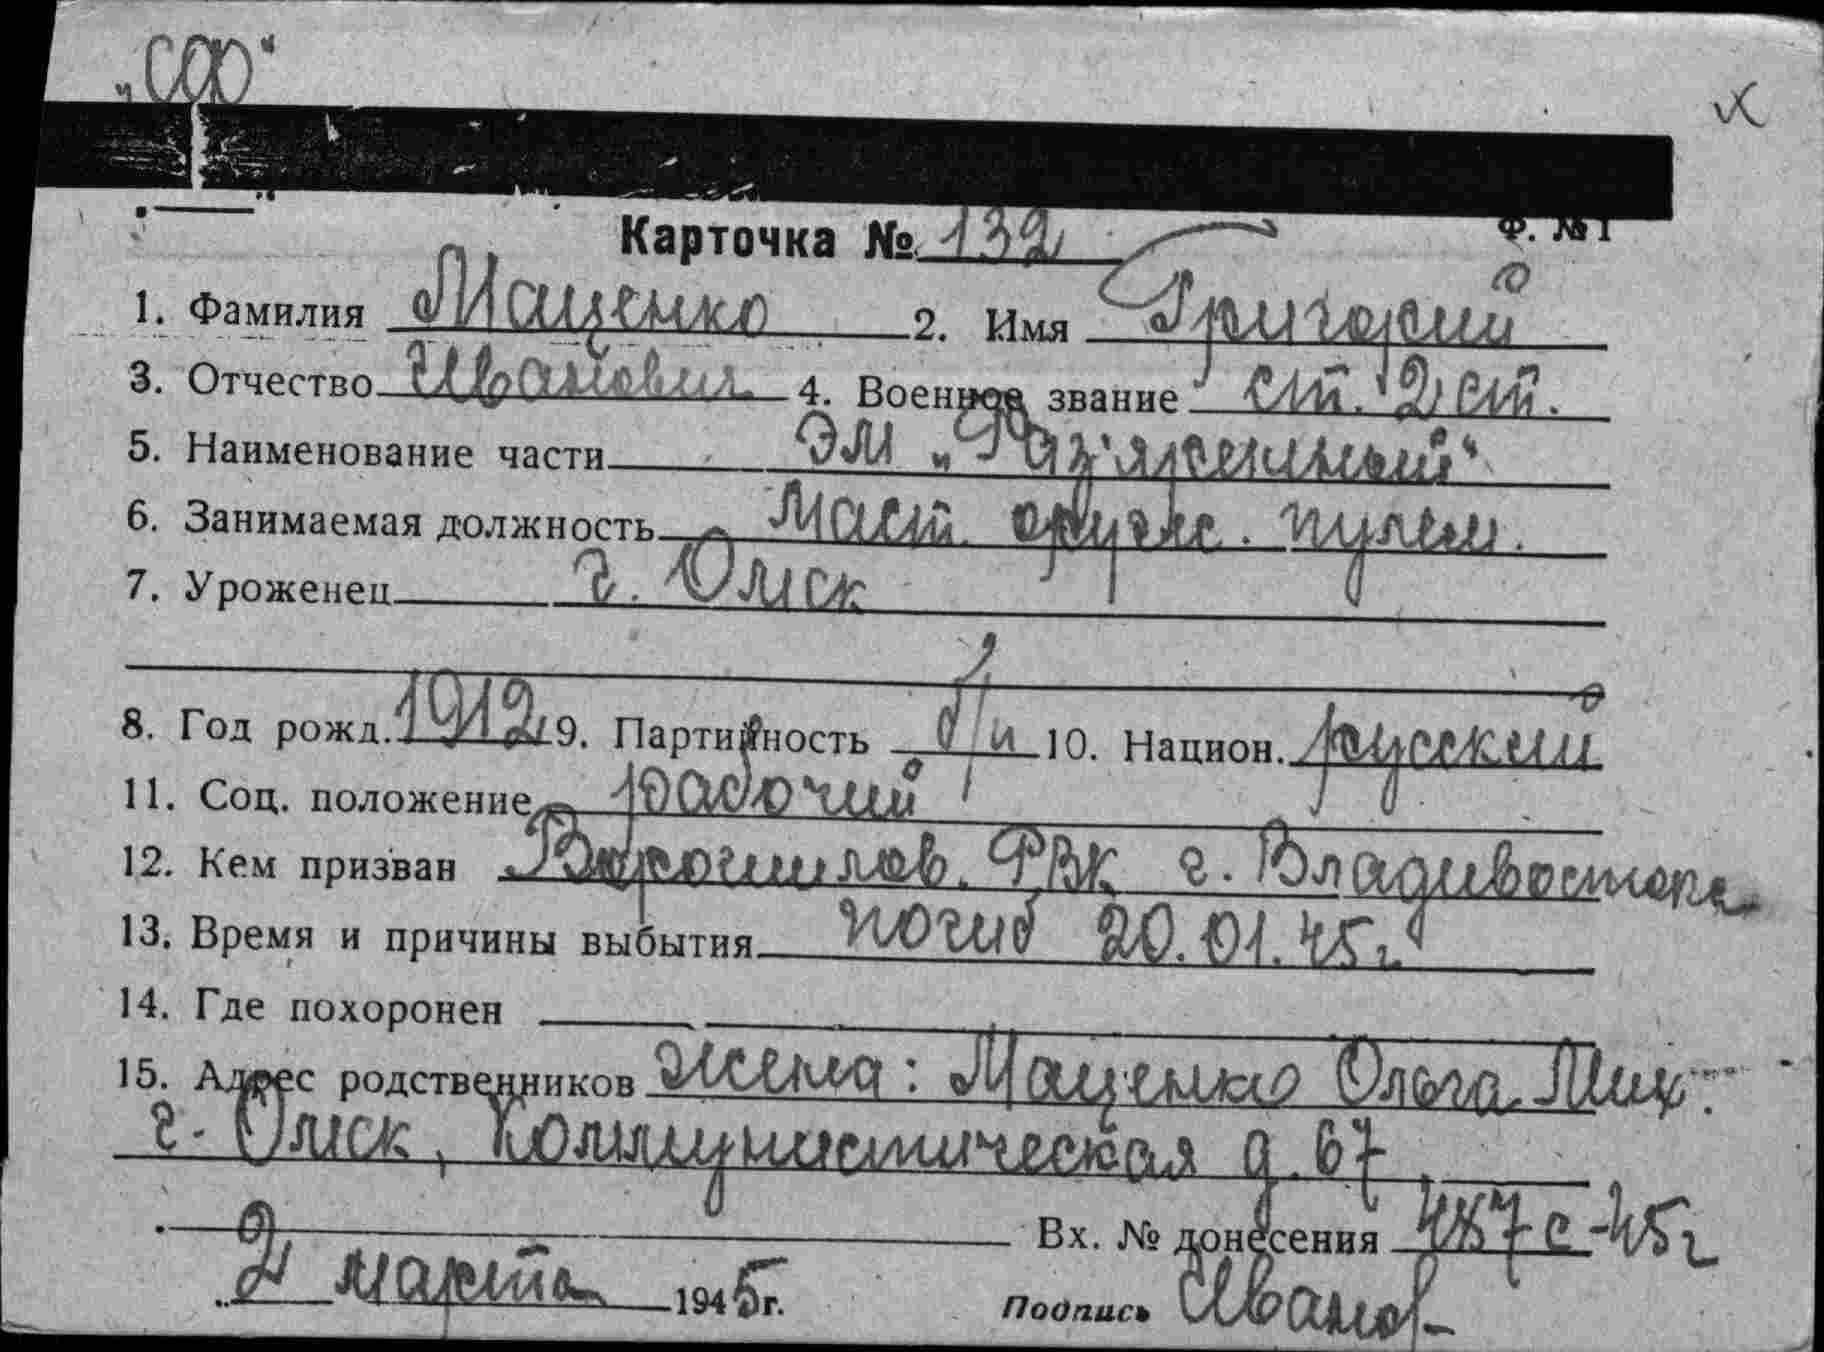 „СФ“
Ф. №1
Карточка № 132
1. Фамилия Маценко 2. Имя Григорий
3. Отчество Иванович 4. Военное звание ст. 2 ст.
5. Наименование части ЭМ „Раз'яренный“
6. Занимаемая должность маст. оруж. пулем.
7. Уроженец г. Омск
8. Год рожд. 1912 9. Партийность б/п 10. Национ. русский
11. Соц. положение рабочий
12. Кем призван Ворошилов. РВК г. Владивостока
13. Время и причины выбытия погиб 20.01.45г.
14. Где похоронен
15. Адрес родственников жена: Маценко Ольга Мих.
г. Омск, Коммунистическая д. 67
Вх. № донесения 487с-45г
„2 марта 1945г. Подпись Иванов